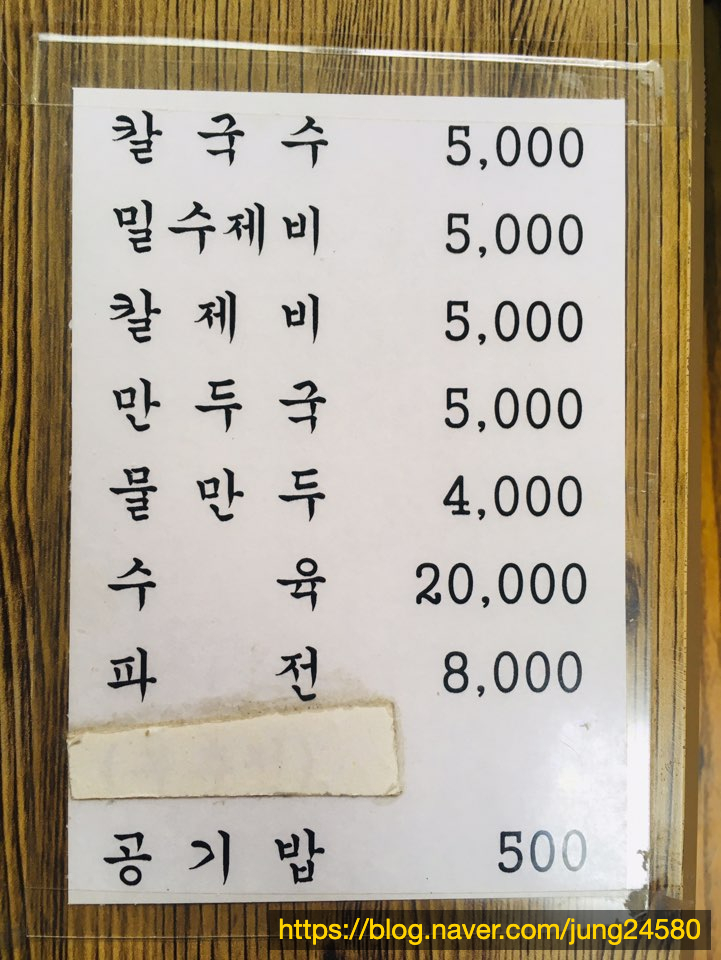 칼국수 5,000
밀수제비 5,000
칼제비 5,000
만두국 5,000
물만두 4,000
수육 20,000
파전 8,000
공기밥 500
https://blog.naver.com/jung24580